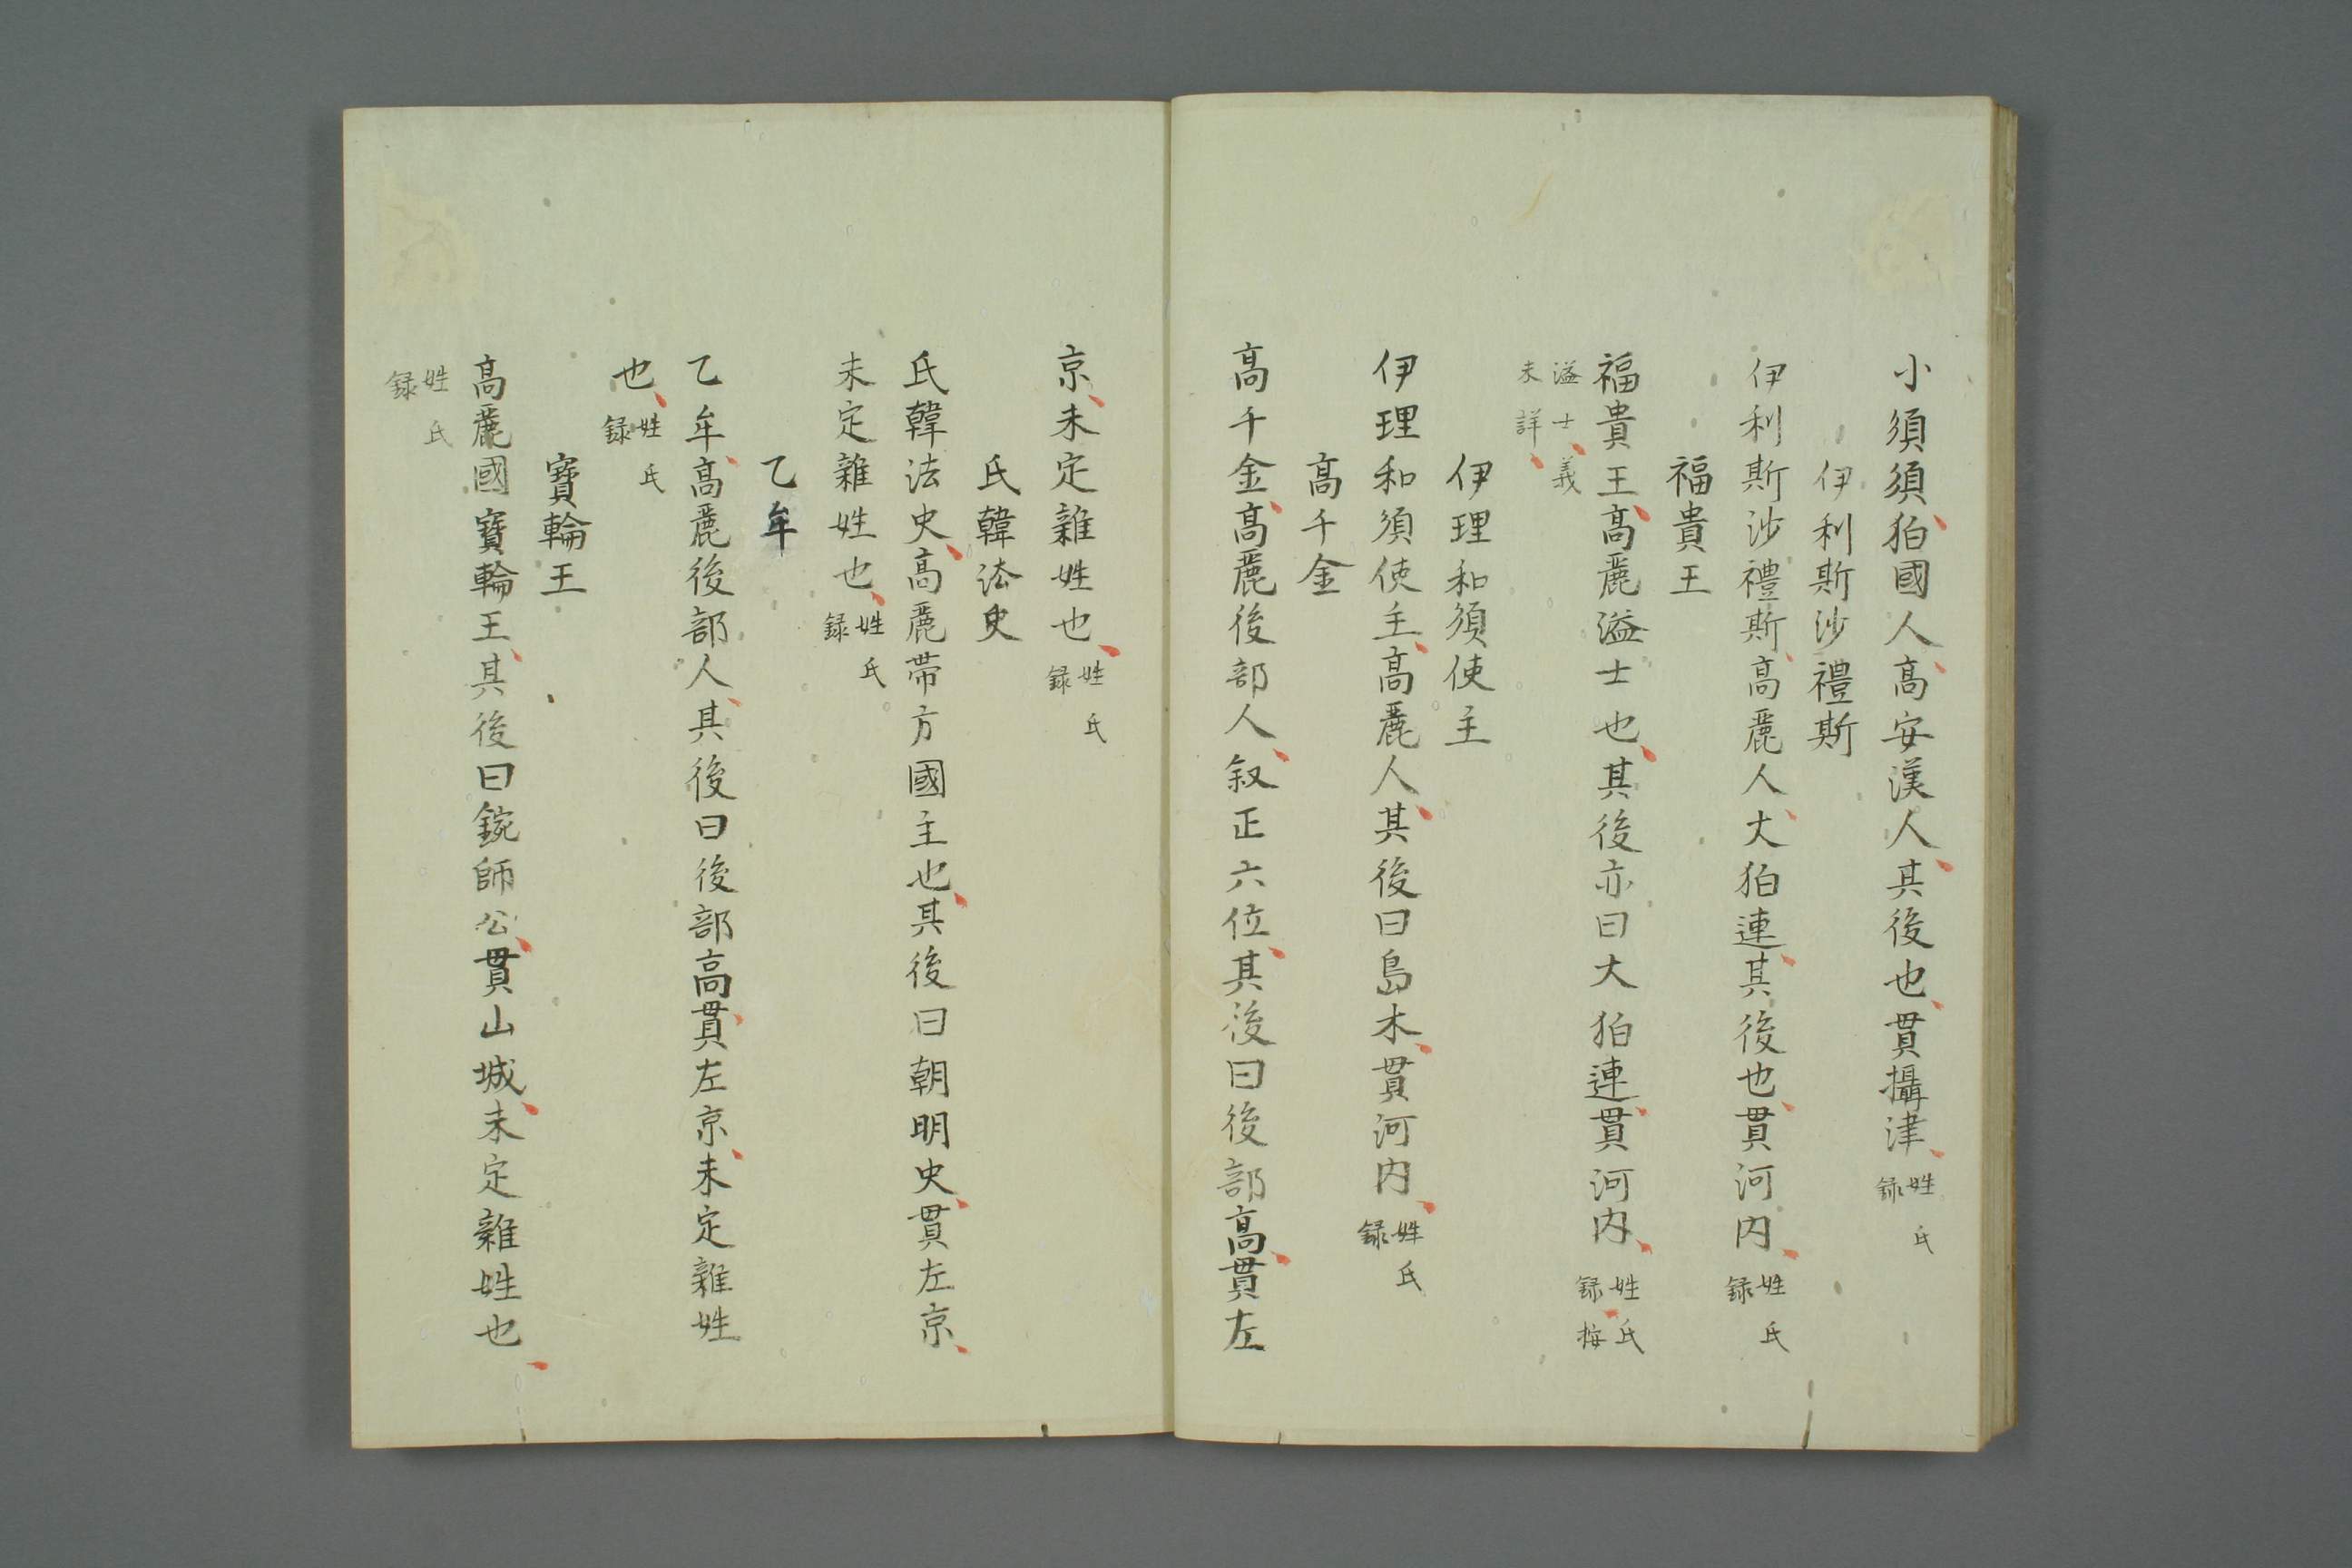 小須須狛國人高安漢人其後也貫攝津姓氏録
伊利斯沙禮斯
伊利斯沙禮斯高麗人大狛連其後也貫河内姓氏録
福貴王
福貴王高麗溢士也其後亦曰大狛連貫河内姓氏録按
溢士義未詳
伊理和須使主
伊理和須使主高麗人其後曰島木貫河内姓氏録
高千金
高千金高麗後部人叙正六位其後曰後部高貫左
京未定雜姓也姓氏録
氏韓法史
氏韓法史高麗帶方國主也其後曰朝明史貫左京
未定雜姓也姓氏録
乙牟
乙牟高麗後部人其後曰後部高貫左京未定雜姓
也姓氏録
寳輪王
高麗國寳輪王其後曰鋺師公貫山城未定雜姓也
姓氏録